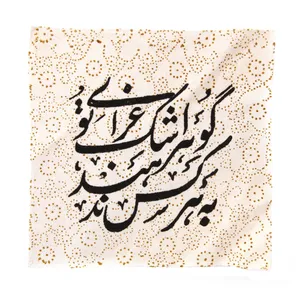 گوهر اشک عزای تو
به هر کس ندهند